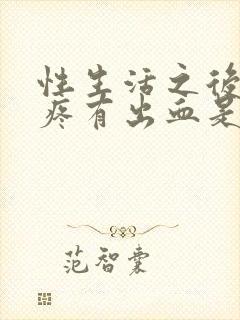 性生活之後
疼有出血是
范智囊